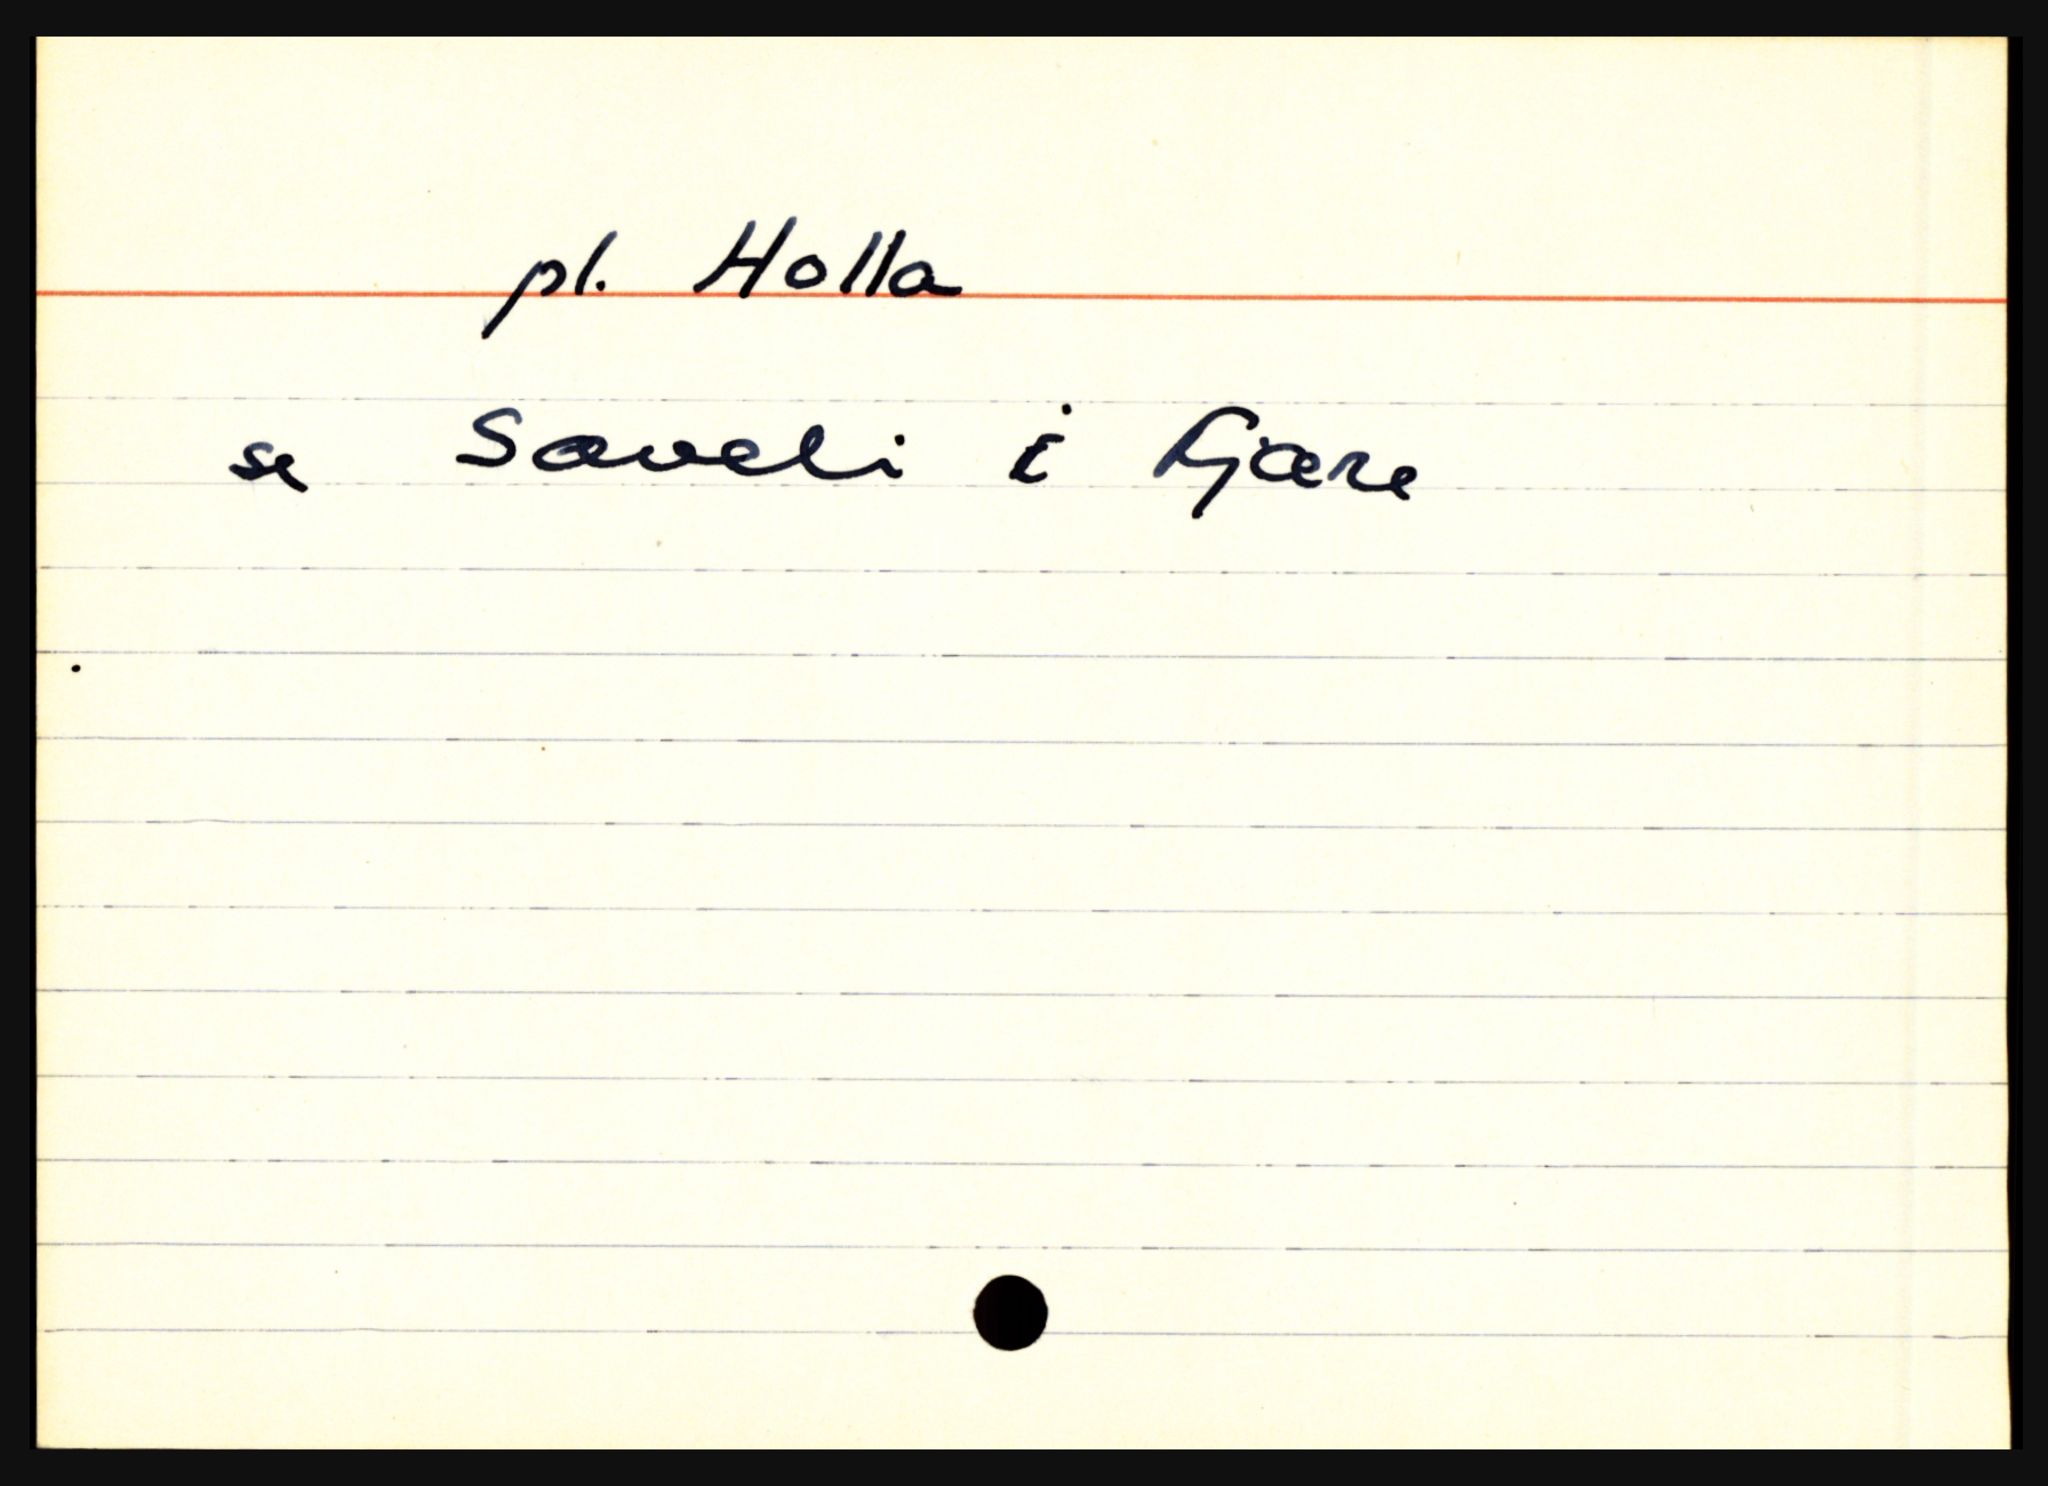 pl. Holla
se Sæveli i Fjære